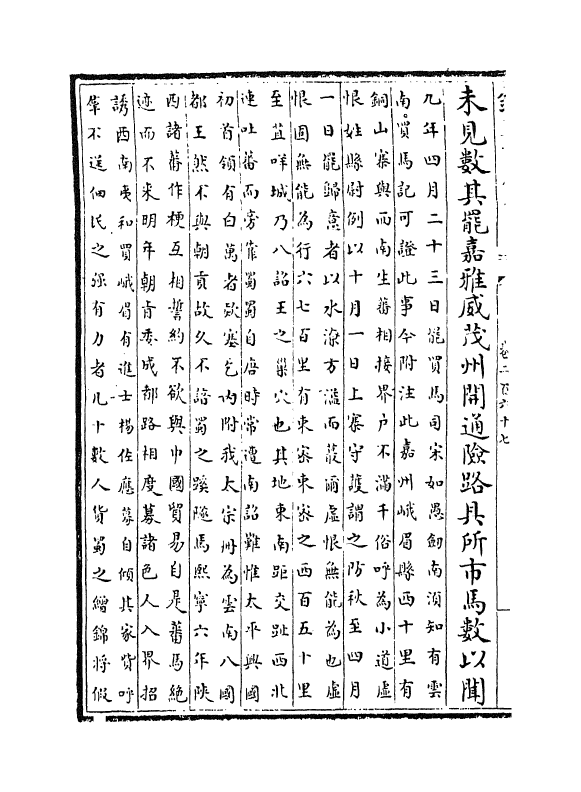 未見數其罷嘉雅威茂州開通險路具所市馬數以聞
九年四月二十三日罷買馬司宋如愚劍南須知有雲
南買馬記可證此事今附注此嘉州峨眉縣西十里有
銅山寨與西南生蕃相接界户不滿千俗呼為小道虛
恨姓縣尉例以十月一日上寨守護謂之防秋至四月
一日罷歸意者以水潦方濫而蕞爾虛恨無能為也虛
恨固無能為行六七百里有束密束密之西百五十里
至苴咩城乃八詔王之巢穴也其地東南距交趾西北
連吐蕃而旁靠蜀蜀自唐時常遭南詔難惟太平興國
初首領有白萬者欵塞乞内附我太宗册為雲南八國
都王然不與朝貢故久不諳蜀之蹊隧焉熙寧六年陜
西諸蕃作梗互相誓約不欲與中國貿易自是蕃馬絶
迹而不來明年朝旨委成都路相度募諸色人入界招
誘西南夷和買峨眉有進士楊佐應募自傾其家貲呼
羣不逞佃民之强有力者凡十數人貨蜀之繒錦將假
卷二百六十七